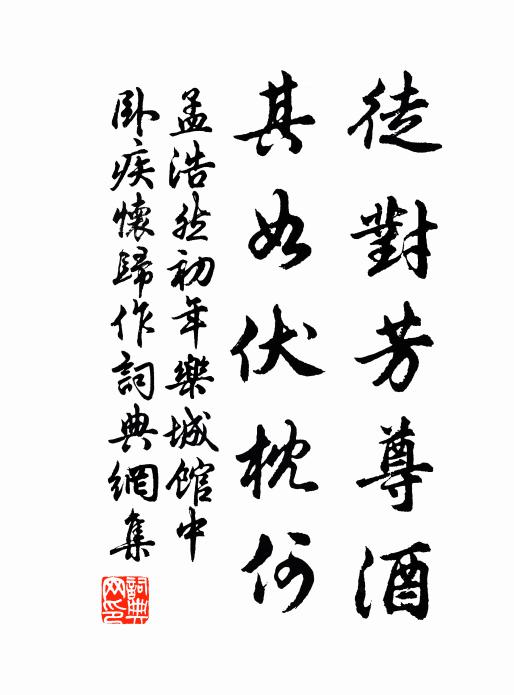 徒對芳尊酒
其如伏枕何
孟浩然初年樂城館中
臥疾懷歸作詞典網集
詞典網印